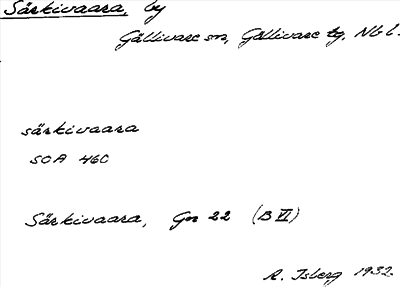 Särkivaara, by
Gällivare sn, Gällivare tg, Nb l.
särkivaara
SOA 460
Särkivaara, Gn 22 (B VI)
A. Isberg 1932.